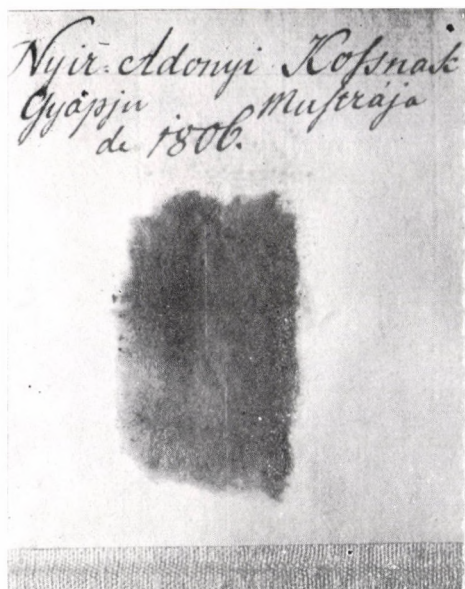 Nyir-Adonyi Kosſnak
Gyápju Muſtrája
de 1806.